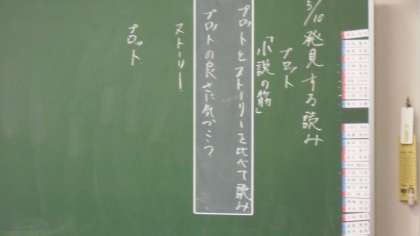 3/10 発見する読み
プロット
「小説の筋」
プロットとストーリーを比べて読み
プロットの良さに気づこう
ストーリー
プロット